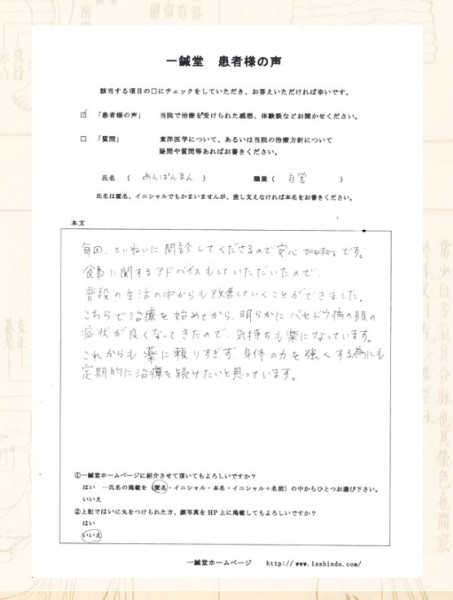 一鍼堂 患者様の声
該当する項目の□にチェックをしていただき、お答えいただければ幸いです。
☑ 「患者様の声」 当院で治療を受けられた感想、体験談などお聞かせください。
□ 「質問」 東洋医学について、あるいは当院の治療方針について
疑問や質問等あればお書きください。
氏名 ( あんぱんまん ) 職業 ( 自営 )
氏名は匿名、イニシャルでもかまいませんが、差し支えなければ本名をお書きください。
本文
毎回、ていねいに問診してくださるので安心です。
食事に関するアドバイスもしていただいたので、
普段の生活の中からも改善していくことができました。
こちらで治療を始めてから、明らかにバセドウ病の眼の
症状が良くなってきたので、気持ちも楽になっています。
これからも薬に頼りすぎず、身体の力を強くする為にも
定期的に治療を続けたいと思っています。
①一鍼堂ホームページに紹介させて頂いてもよろしいですか?
はい →氏名の掲載を (匿名・イニシャル・本名・イニシャル+名前) の中からひとつお選び下さい。
いいえ
②上記ではいに丸をつけられた方、顔写真を HP 上に掲載してもよろしいですか?
はい
いいえ
一鍼堂ホームページ http://www.1sshindo.com/